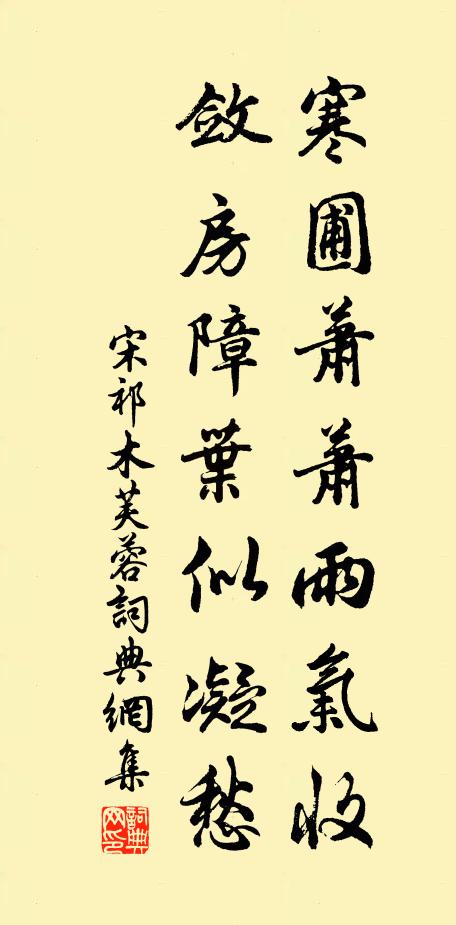 寒圃蕭蕭雨氣收
斂房障葉似凝愁
宋祁木芙蓉詞典網集
詞典網印